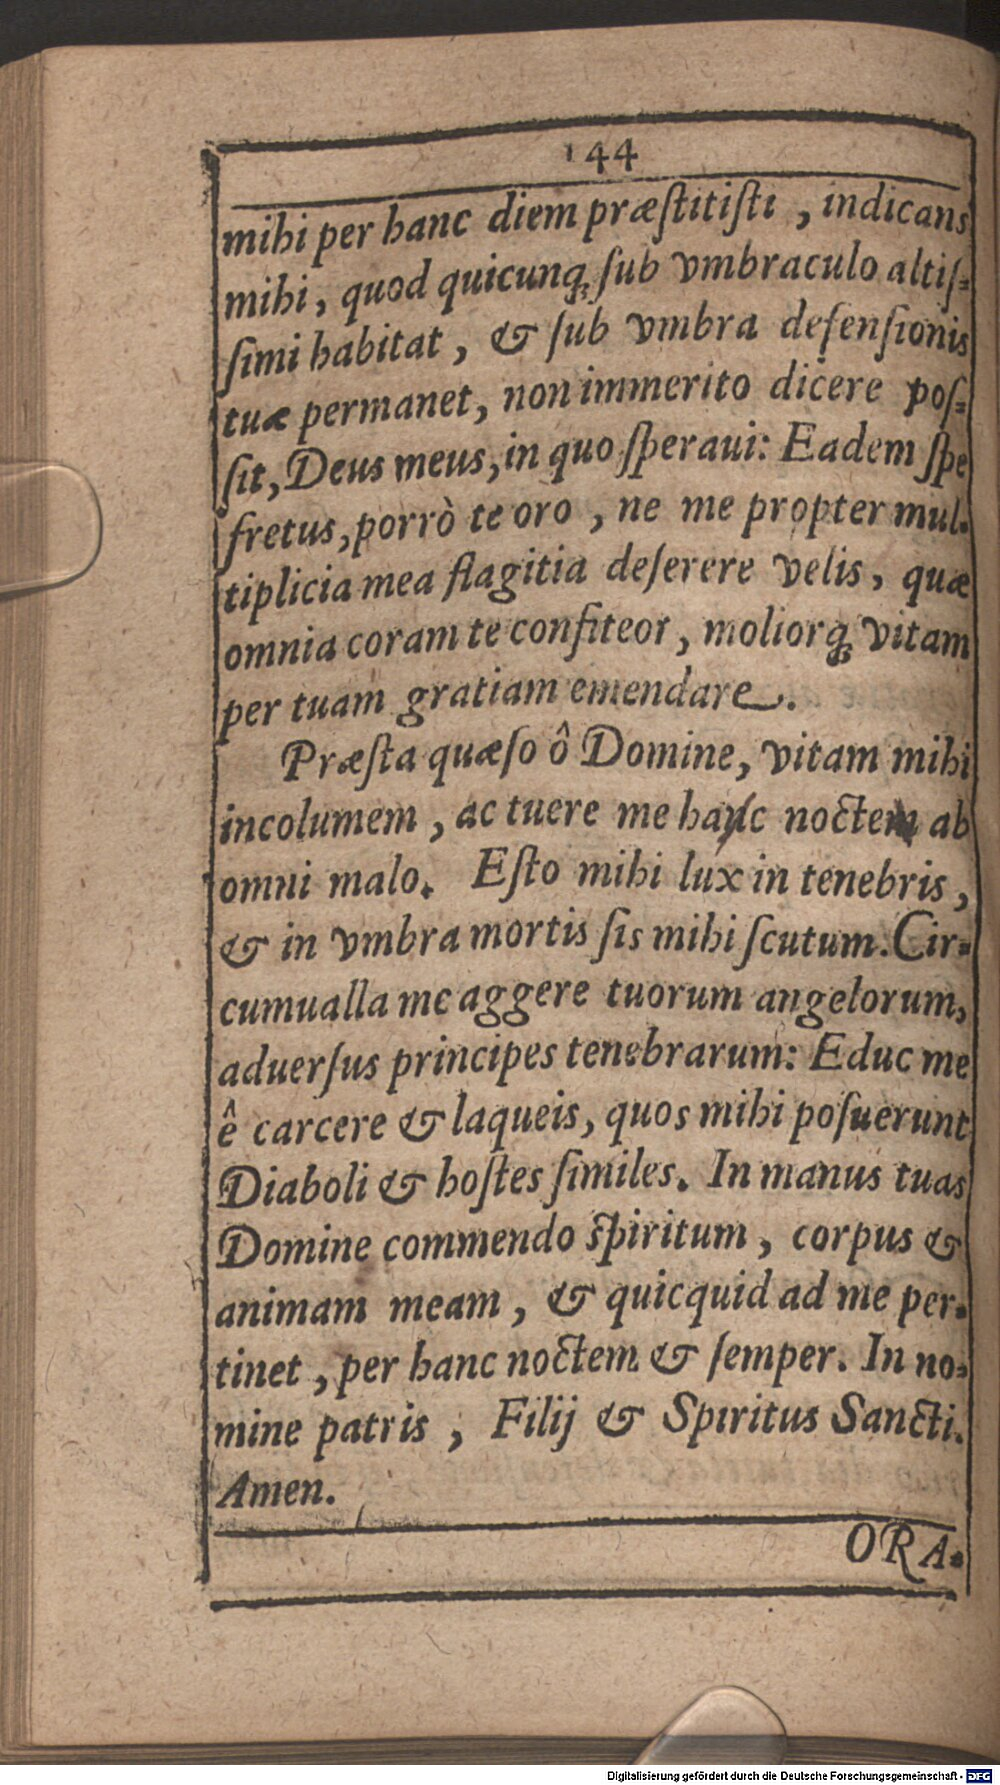 144
mihi per hanc diem præſtitiſti, indicans
mihi, quod quicunq; ſub vmbraculo altiſ-
ſimi habitat, & ſub vmbra defenſionis
tuæ permanet, non immerito dicere poſ-
ſit, Deus meus, in quo ſperaui: Eadem ſpe
fretus, porrò te oro, ne me propter mul-
tiplicia mea flagitia deſerere velis, quæ
omnia coram te confiteor, moliorq; vitam
per tuam gratiam emendare.
Præſta quæſo ô Domine, vitam mihi
incolumem, ac tuere me hanc noctem ab
omni malo. Eſto mihi lux in tenebris,
& in vmbra mortis ſis mihi ſcutum. Cir-
cumualla me aggere tuorum angelorum,
aduerſus principes tenebrarum: Educ me
ê carcere & laqueis, quos mihi poſuerunt
Diaboli & hoſtes ſimiles. In manus tuas
Domine commendo ſpiritum, corpus &
animam meam, & quicquid ad me per-
tinet, per hanc noctem & ſemper. In no-
mine patris, Filij & Spiritus Sancti.
Amen.
ORA-
Digitalisierung gefördert durch die Deutsche Forschungsgemeinschaft - DFG